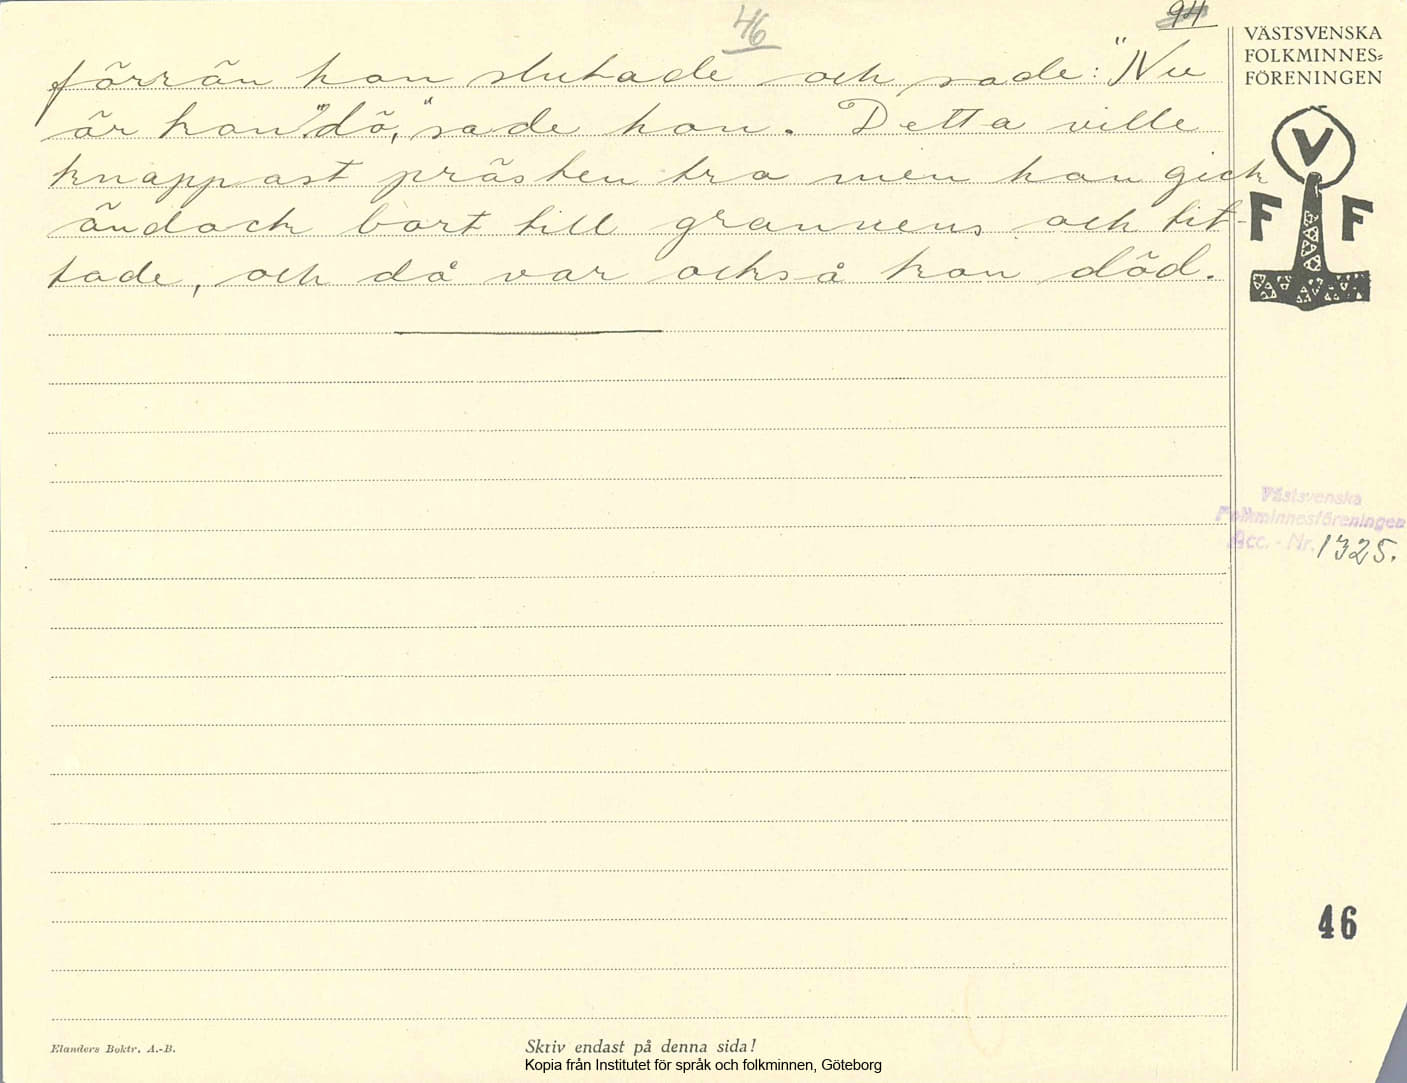 46
94
förrän han slutade och sade: "Nu
är han "dö," sade han. Detta ville
knappast prästen tro men han gick
ändock bort till grannens och tit-
tade, och då var också han död.
VÄSTSVENSKA
FOLKMINNES=
FÖRENINGEN
V
F F
Västsvenska
Folkminnesföreningen
Acc. - Nr. 1325.
46
Elanders Boktr. A.-B.
Skriv endast på denna sida!
Kopia från Institutet för språk och folkminnen, Göteborg